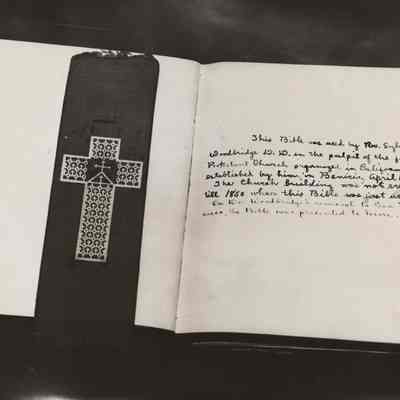 This Bible was used by Rev. Sylv
Woodbridge D. D. in the pulpit of the f
Protestant Church organized in Californ
established by him in Benicia, April
The Church building was not er
till 1850 when this Bible was first us
On Dr. Woodbridge's removal to San
the Bible was presented to